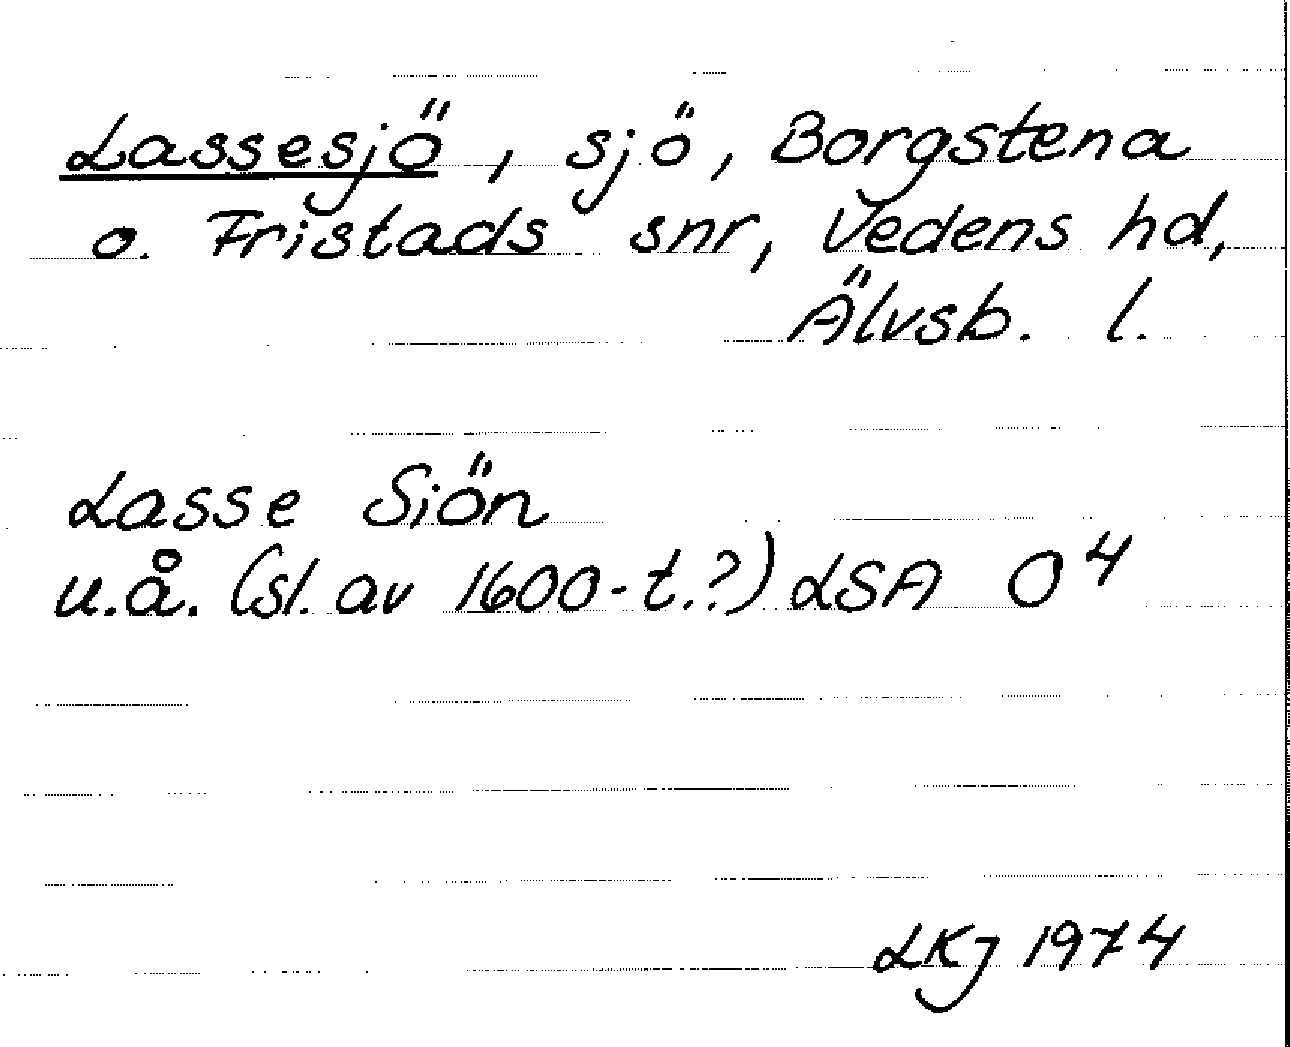 Lassesjö, sjö, Borgstena
o. Fristads snr, Vedens hd,
Älvsb. l.
Lasse Siön
u.å. (sl. av 1600-t.?) LSA O⁴
LKJ 1974